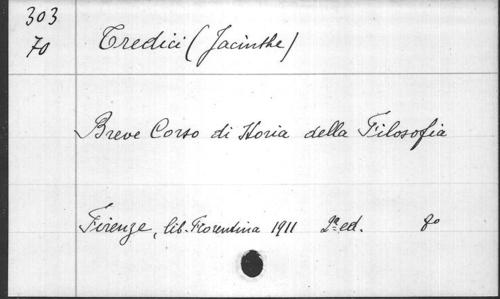 303
70
Tredici (Jacinthe)
Breve Corso di Storia della Filosofia
Firenze, lib. Fiorentina 1911 2ª ed. 8º